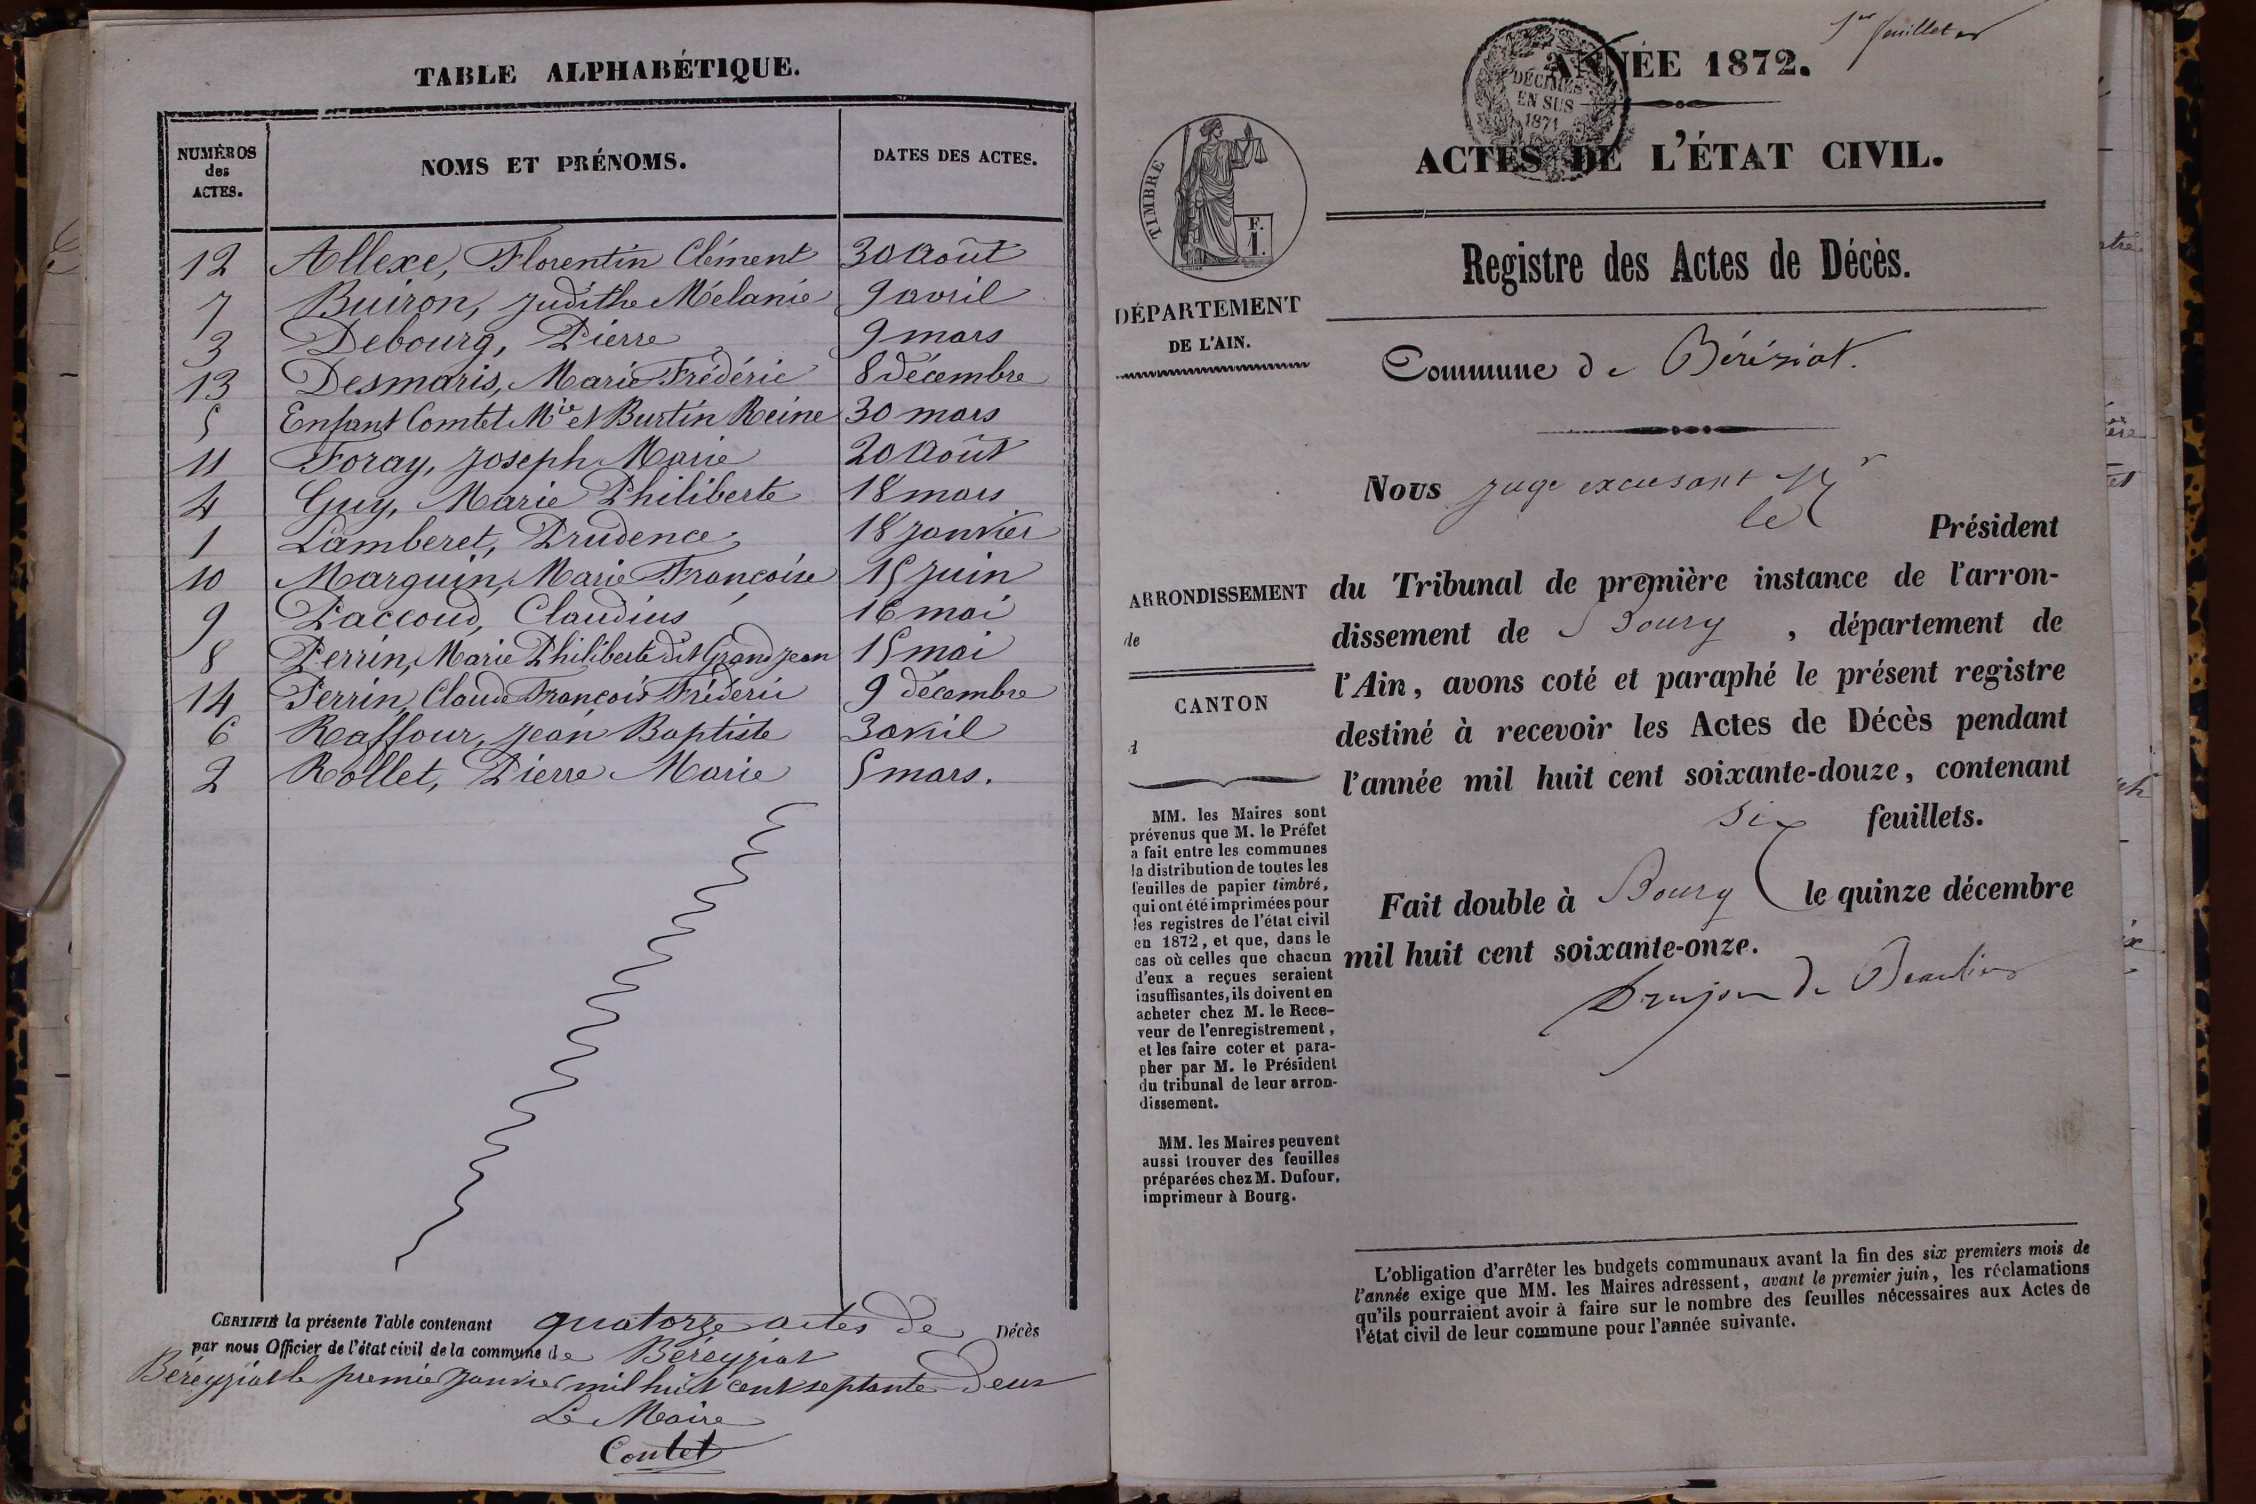 TABLE ALPHABÉTIQUE.
NUMÉROS
des
ACTES.
NOMS ET PRÉNOMS.
DATES DES ACTES.
12 Allexe, Florentin Clément 30 Août
7 Buiron, Judithe Mélanie 9 avril
3 Debourg, Pierre 9 mars
13 Desmaris, Marie Frédéric 8 décembre
5 Enfant Comtet Mie et Burtin Reine 30 mars
11 Foray, Joseph Marie 20 Août
4 Guy, Marie Philiberte 18 mars
1 Lamberet, Prudence 18 janvier
10 Marguin, Marie Françoise 15 juin
9 Paccoud, Claudius 16 mai
8 Perrin, Marie Philiberte dit Grand jean 15 mai
14 Perrin, Claude François Fréderic 9 décembre
6 Raffour, Jean Baptiste 3 avril
2 Rollet, Pierre Marie 5 mars.
CERTIFIÉ la présente Table contenant quatorze actes de Décès
par nous Officier de l'état civil de la commune de Béreyziat
Béreyziat le premier janvier mil huit cent septante deux
Le Maire
Contet
1er feuillet
2
DÉCIMES
EN SUS
1871
ANNÉE 1872.
ACTES DE L'ÉTAT CIVIL.
TIMBRE
F.
1.
Registre des Actes de Décès.
DÉPARTEMENT
DE L'AIN.
Commune de Béréziat.
Nous juge excusant Mr
le Président
ARRONDISSEMENT
de
CANTON
d
du Tribunal de première instance de l'arron-
dissement de Bourg, département de
l'Ain, avons coté et paraphé le présent registre
destiné à recevoir les Actes de Décès pendant
l'année mil huit cent soixante-douze, contenant
six feuillets.
Fait double à Bourg le quinze décembre
mil huit cent soixante-onze.
Drujon de Beaulieu
MM. les Maires sont
prévenus que M. le Préfet
a fait entre les communes
la distribution de toutes les
feuilles de papier timbré,
qui ont été imprimées pour
les registres de l'état civil
en 1872, et que, dans le
cas où celles que chacun
d'eux a reçues seraient
insuffisantes, ils doivent en
acheter chez M. le Rece-
veur de l'enregistrement,
et les faire coter et para-
pher par M. le Président
du tribunal de leur arron-
dissement.
MM. les Maires peuvent
aussi trouver des feuilles
préparées chez M. Dufour,
imprimeur à Bourg.
L'obligation d'arrêter les budgets communaux avant la fin des six premiers mois de
l'année exige que MM. les Maires adressent, avant le premier juin, les réclamations
qu'ils pourraient avoir à faire sur le nombre des feuilles nécessaires aux Actes de
l'état civil de leur commune pour l'année suivante.